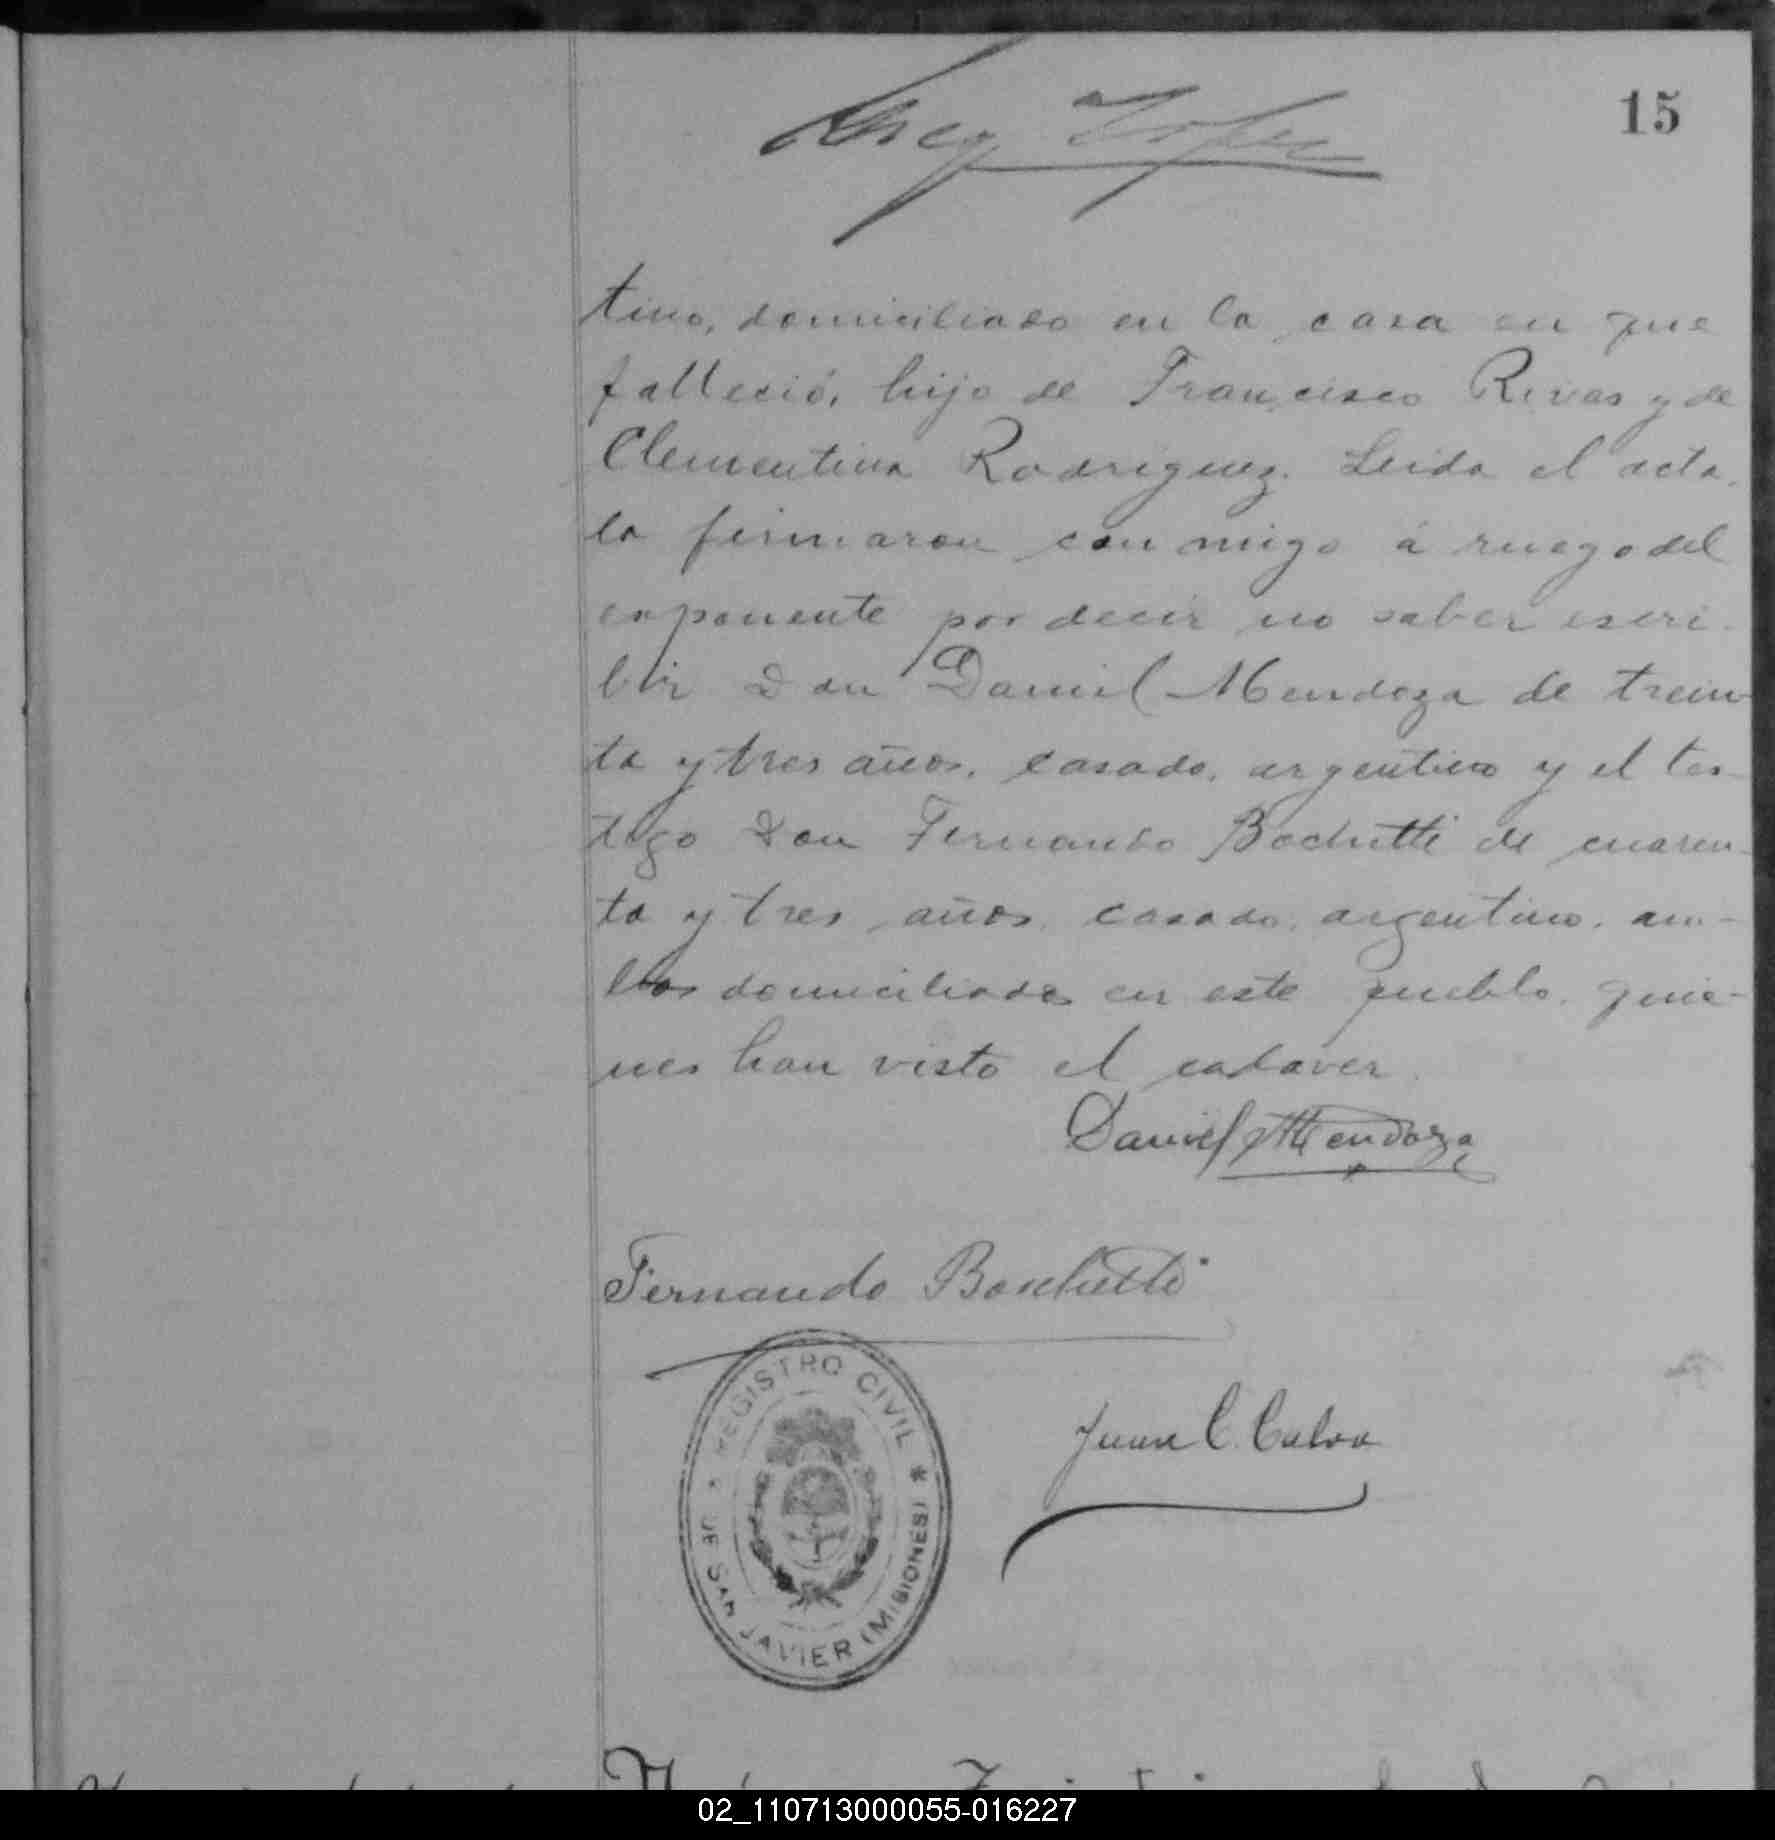 15
tino, domiciliado en la casa en que
falleció, hijo de Francisco Rivas y de
Clementina Rodriguez. Leida el acta,
la firmaron con migo á ruego del
exponente por decir no saber escri-
bir Don Daniel Mendoza de trein-
ta y tres años, casado, argentino y el tes-
tigo Don Fernando Bochetti de cuaren-
ta y tres años, casado, argentino, am-
bos domiciliados en este pueblo, quie-
nes han visto el cadaver.
Daniel Mendoza
Fernando Boschetti
REGISTRO CIVIL * DE SAN JAVIER (MISIONES) *
Juan C. Calvo
02_110713000055-016227